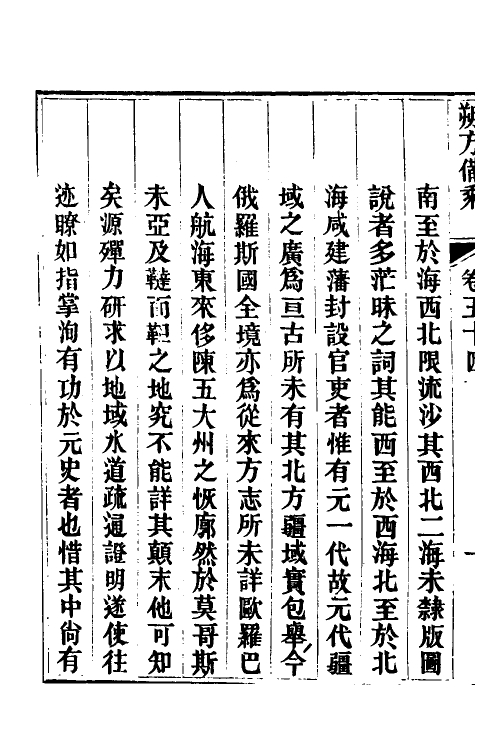 朔方備乘 卷五十四 一
南至於海西北限流沙其西北二海未隸版圖
說者多茫昧之詞其能西至於西海北至於北
海咸建藩封設官吏者惟有元一代故元代疆
域之廣爲亘古所未有其北方疆域實包舉今
俄羅斯國全境亦爲從來方志所未詳歐羅巴
人航海東來侈陳五大州之恢廓然於莫哥斯
未亞及韃而靼之地究不能詳其顛末他可知
矣源殫力研求以地域水道疏通證明遂使往
迹瞭如指掌洵有功於元史者也惜其中尙有